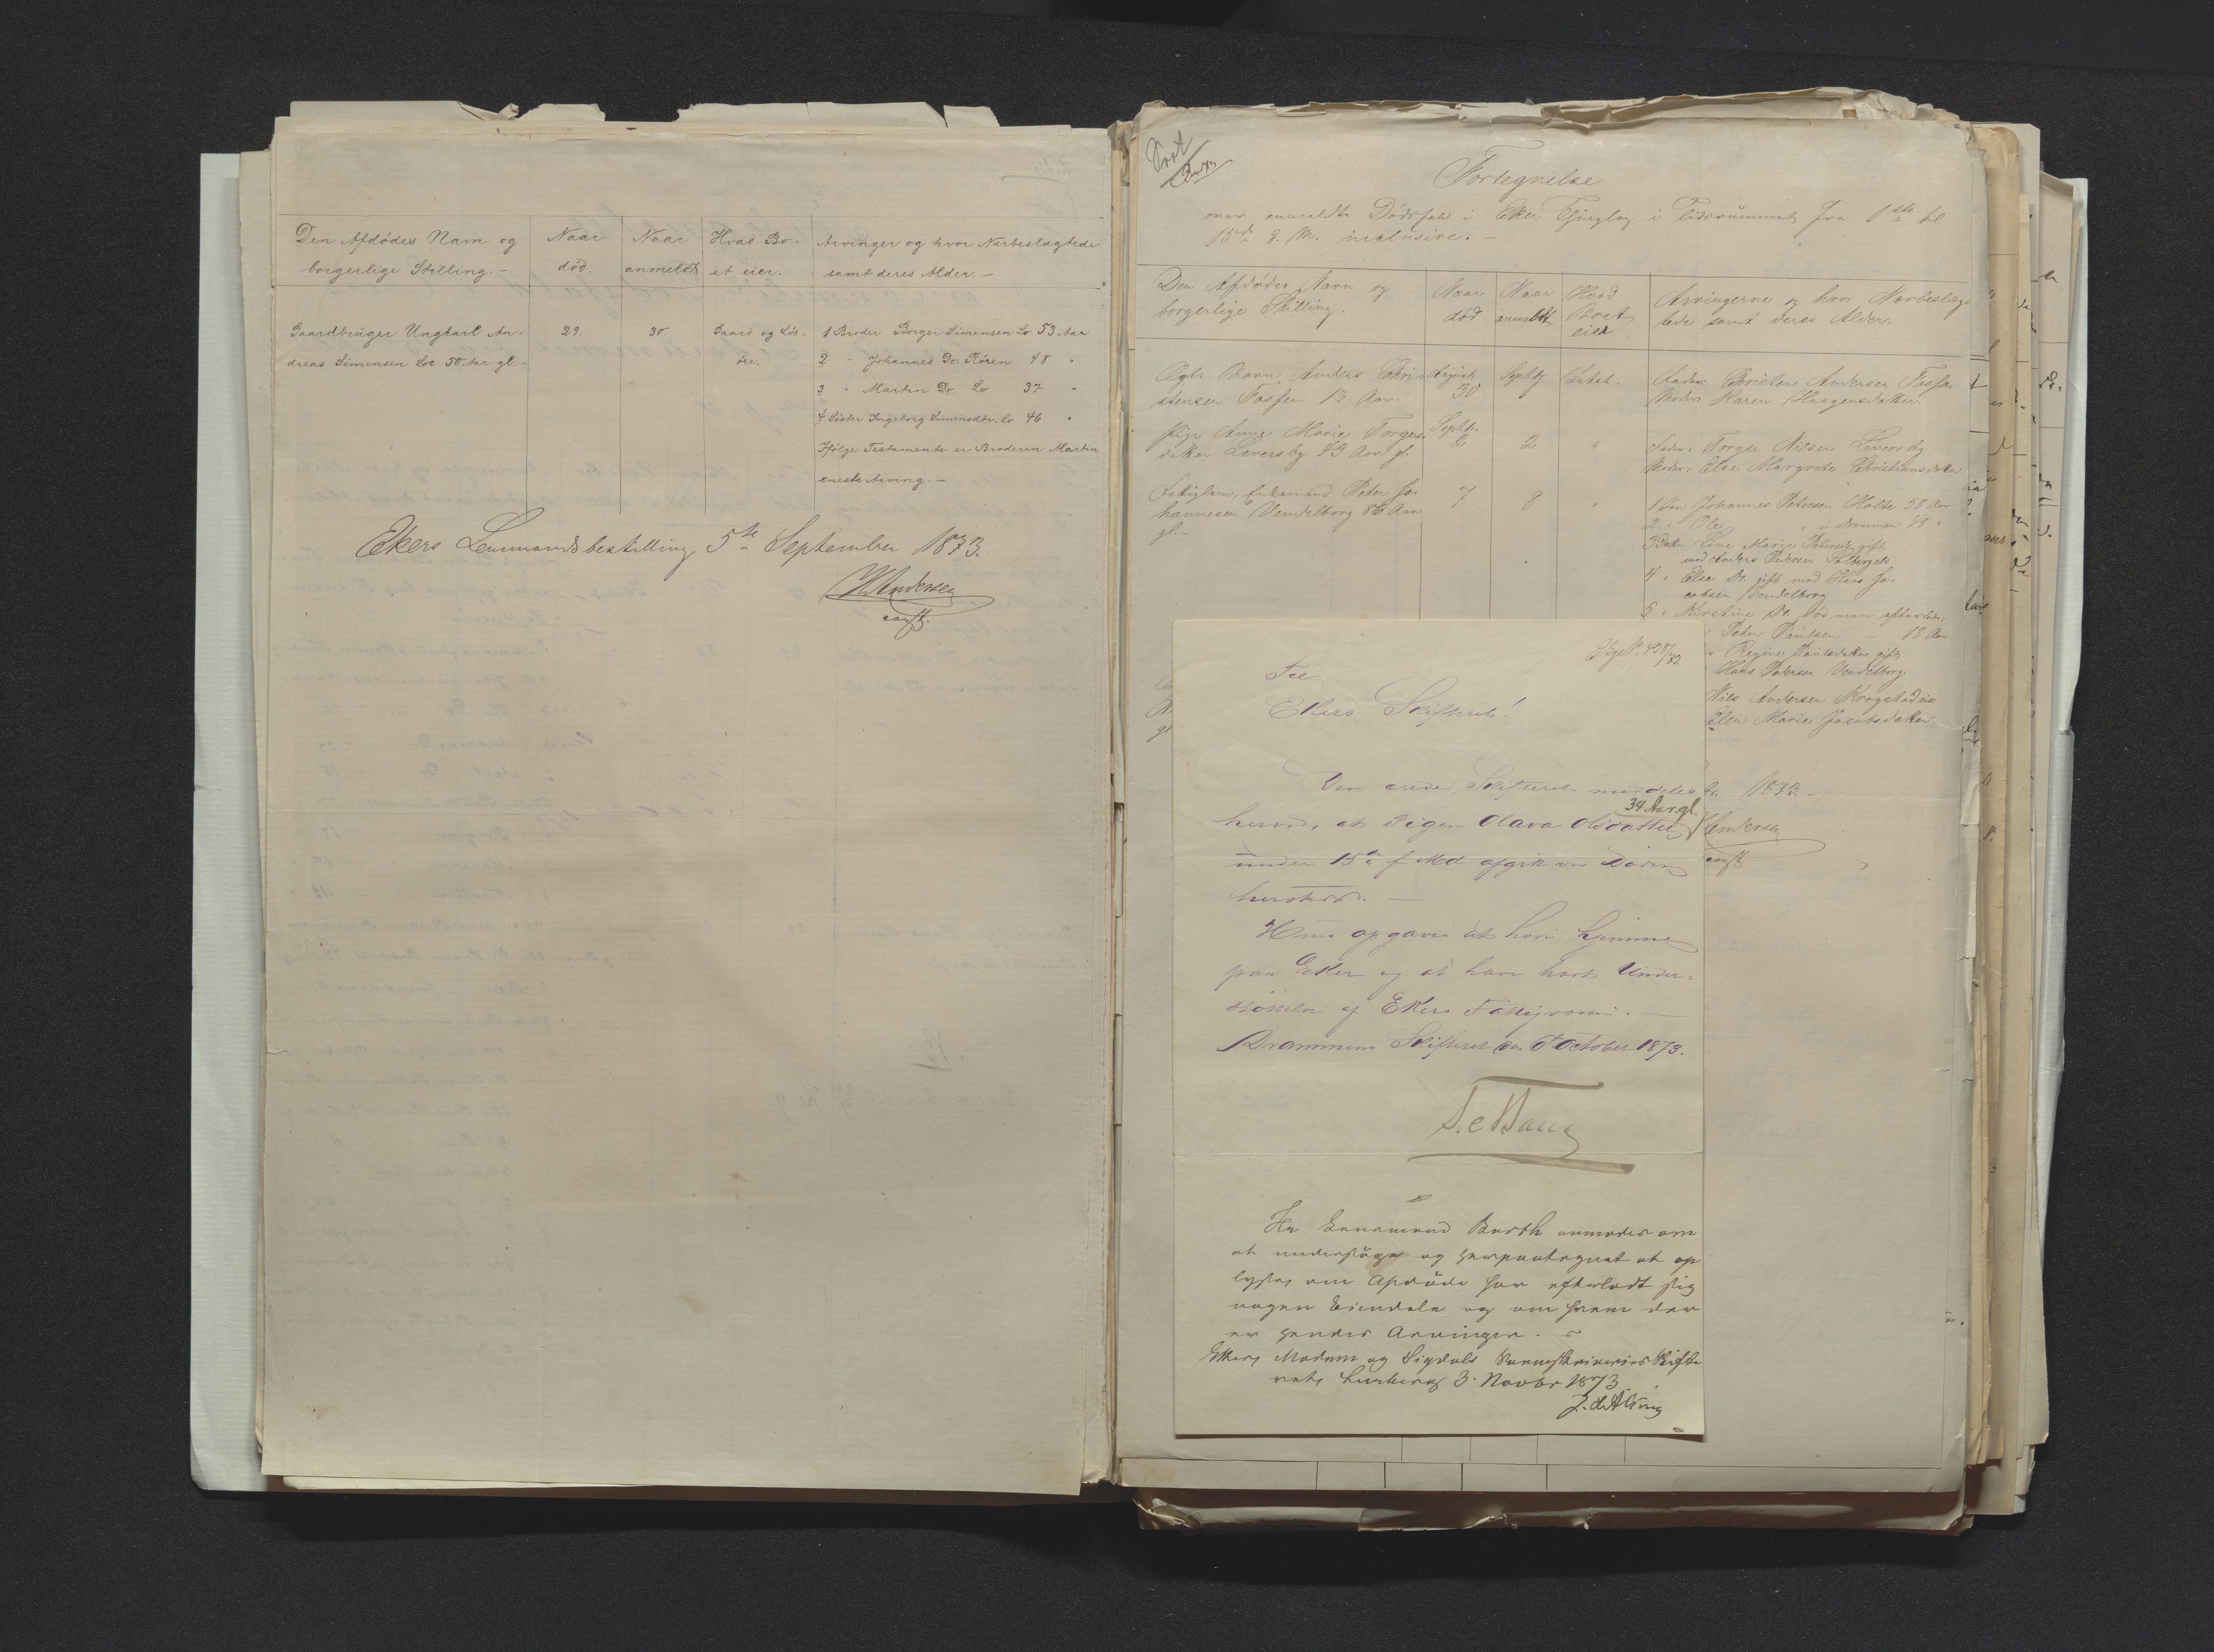 Den Afdødes Navn og
borgerlige Stilling.-
Naar
død.
Naar
anmeldt
Hvad Bo-
et eier.
Arvinger og hvor Nærbeslægtede
samt deres Alder.-
Gaardbruger Ungkarl An-
dreas Simensen Loe 50 Aar gl.-
29.
30
Gaard og Løs-
øre.
1 Broder Borger Simensen Lo 53 Aar
2 " Johannes Do. Røren 48 "
3 " Martin Do Lo 37 "
4 Søster Ingeborg Simensdtr. Lo 46 "
Ifølge Testamente er Broderen Martin
eneste Arving.-
Ekers Lensmandsbestilling 5te September 1873.
Andersen
const.
Fortegnelse
over anmeldte Dødsfald i Eker Thinglag i Tidsrummet fra 1ste til
15de d. M. inclusive.-
Den Afdødes Navn og
borgerlige Stilling.
Naar
død
Naar
anmeldt
Hvad
Boet
eier
Arvingerne og hvor Nærbeslæg-
tede samt deres Alder.
Barn Anders Chri-
stensen Fossen 12 Aar
August
30
Fader: Christen Andersen Fosse
Moder: Karen Haagensdatter.
Pige Anne Marie Torgers-
datter Leversby 43 Aar gl.
Septbr.
2
2
"
Fader: Torger Nilsen Leversby
Moder: Else Margrete Christiansdatter
Fattiglem, Enkemand Peter Jo-
hannesen Vendelborg 86 Aar
gl.-
7
8
"
1 Søn Johannes Petersen Holte 58 Aar
2 " Ole " i Drammen 48 "
3 Datter Live Marie gift
med Anders Pedersen Solberg
4 " Else Do. gift med Hans Ja-
cobsen Vendelborg
5 " Kirstine Do. død men efterlader:
Peter Paulsen - 18 Aar
" Regine Paulsdatter gift
Hans Pedersen Vendelborg.
Nils Andersen Krogstad
Elen Marie Jacobsdatter.
1873.-
Andersen
const.
Til
Ekers Skifteret!
Den ærede Skifteret meddeles
34 Aar gl.
herved, at Pigen Olava Olsdatter
under 15de f. Md afgik ved Døden
hersteds.-
Hun opgaves at høre hjemme
paa Eker og at have havt Under-
støttelse af Ekers Fattigvæsen.
Drammens Skifteret den 8 October 1873.
Hr Lensmand Barth anmodes om
at undersøge og herpaategnet at op
lyse om Afdøde har efterladt sig
nogen Eiendele og om hvem der
er hendes Arvinger.-
Ekers Modum og Sigdals Sorenskriveries Skifte
ret, 3. Novbr 1873